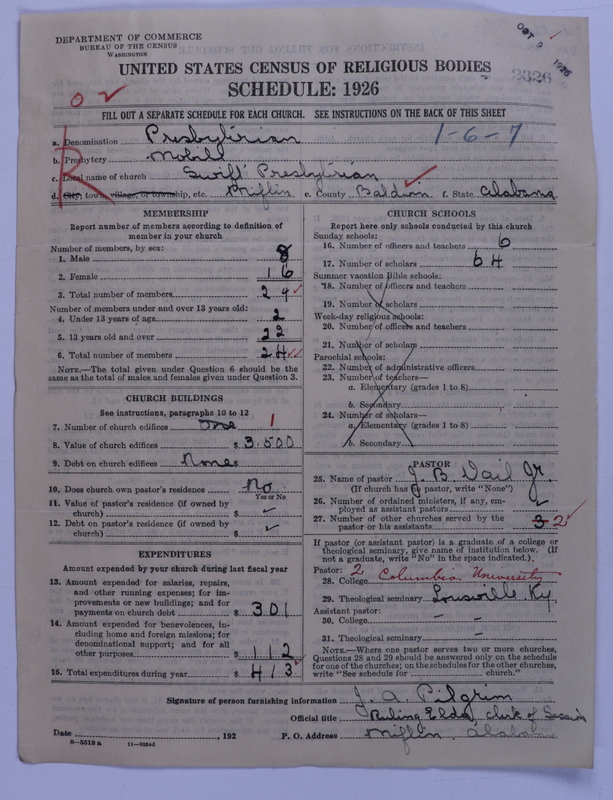 DEPARTMENT OF COMMERCE
BUREAU OF THE CENSUS
WASHINGTON
OCT 9 1926
2326
UNITED STATES CENSUS OF RELIGIOUS BODIES
SCHEDULE: 1926
FILL OUT A SEPARATE SCHEDULE FOR EACH CHURCH. SEE INSTRUCTIONS ON THE BACK OF THIS SHEET
1-6-7
a. Denomination Presbytirian
b. Presbytery Mobill
c. Local name of church Swift Presbytirian
d. City, town, village, or township, etc. Miflin e. County Baldwin f. State Alabama
MEMBERSHIP
Report number of members according to definition of member in your church
Number of members, by sex:
1. Male 8
2. Female 16
3. Total number of members 24
Number of members under and over 13 years old:
4. Under 13 years of age 2
5. 13 years old and over 22
6. Total number of members 24
NOTE.—The total given under Question 6 should be the
same as the total of males and females given under Question 3.
CHURCH BUILDINGS
See instructions, paragraphs 10 to 12
7. Number of church edifices One 1
8. Value of church edifices $ 3,500
9. Debt on church edifices None $
10. Does church own pastor's residence No
Yes or No
11. Value of pastor's residence (if owned by
church) $
12. Debt on pastor's residence (if owned by
church) $
EXPENDITURES
Amount expended by your church during last fiscal year
13. Amount expended for salaries, repairs,
and other running expenses; for im-
provements or new buildings; and for
payments on church debt $ 301
14. Amount expended for benevolences, in-
cluding home and foreign missions; for
denominational support; and for all
other purposes $ 112
15. Total expenditures during year $ 413
CHURCH SCHOOLS
Report here only schools conducted by this church
Sunday schools:
16. Number of officers and teachers 6
17. Number of scholars 64
Summer vacation Bible schools:
18. Number of officers and teachers
19. Number of scholars
Week-day religious schools:
20. Number of officers and teachers
21. Number of scholars
Parochial schools:
22. Number of administrative officers
23. Number of teachers—
a. Elementary (grades 1 to 8)
b. Secondary
24. Number of scholars—
a. Elementary (grades 1 to 8)
b. Secondary
PASTOR
25. Name of pastor J. B. Vail Jr.
(If church has no pastor, write "None")
26. Number of ordained ministers, if any, em-
ployed as assistant pastors
27. Number of other churches served by the
pastor or his assistants 3 2
If pastor (or assistant pastor) is a graduate of a college or
theological seminary, give name of institution below. (If
not a graduate, write "No" in the space indicated.)
Pastor: 2
28. College Columbia University
29. Theological seminary Louisville Ky.
Assistant pastor:
30. College –
31. Theological seminary –
NOTE.—Where one pastor serves two or more churches,
Questions 28 and 29 should be answered only on the schedule
for one of the churches; on the schedules for the other churches,
write "See schedule for church."
Signature of person furnishing information J. A. Pilgrim
Official title Ruling Elder, Clerk of Session
Date , 192 P. O. Address Miflin, Alabama
8-5518 a 11-9284d